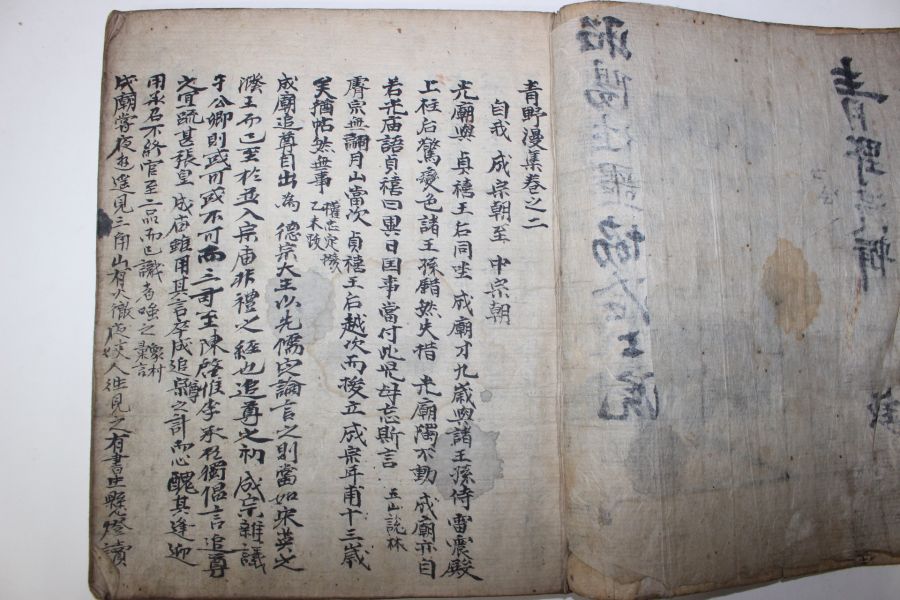 青野漫集卷之二
自我 成宗朝至 中宗朝
光廟與 貞禧王后同坐 成廟才九歲與諸王孫侍雷震殿
上柱后驚變色諸王孫錯然失措 光廟獨不動 成廟亦自
若光庙語貞禧曰異日国事當付此兒毋忘斯言 五山說林
睿宗無嗣月山當次 貞禧王后越次而援立 成宗年甫十三歲
矣猶帖然無事 權忠定撥 乙未改
成廟追尊自出為 德宗大王以先儒定論言之則當如宋英之
濮王而已至於並入宗庙非禮之經也追尊之初 成宗雜議
于公卿則或可或不可而三司至陳啓惟李承召獨倡言追尊
之宜疏甚張皇 成庙雖用其言卒成追崇之計而心醜其逢迎
用承召不終官至二品而已識者嗤之 象村彙言
成廟嘗夜 遙見三角山有火 使人徃見之有書生懸燈讀
青野